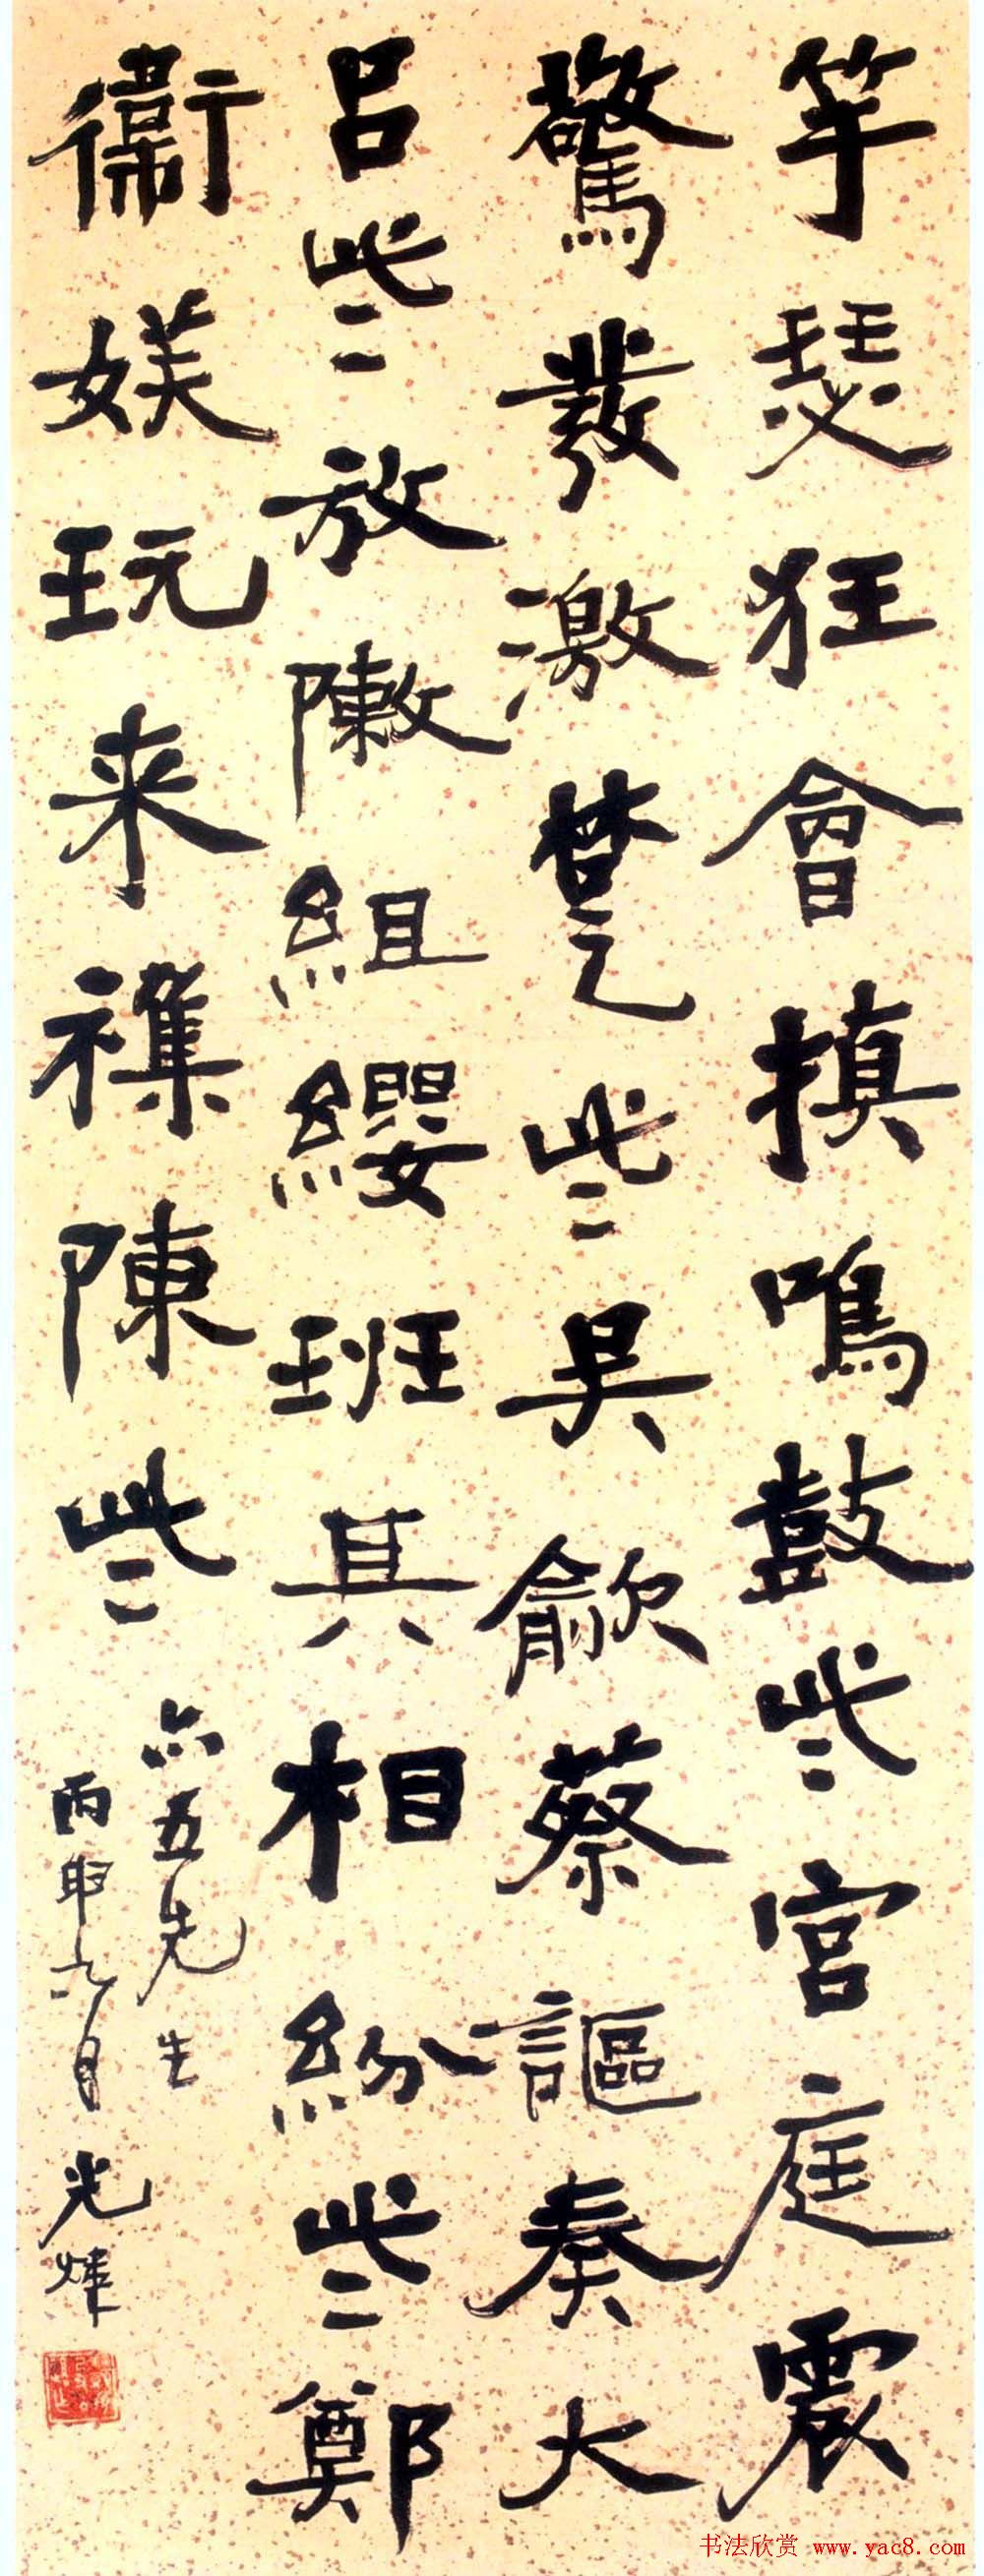 竽瑟狂會搷鳴鼓些宮庭震
驚發激楚些吳歈蔡謳奏大
呂些放敶組纓班其相紛些鄭
衞妖玩来襍陳些
六五先生
丙申九月 光煒
书法欣赏 www.yac8.com